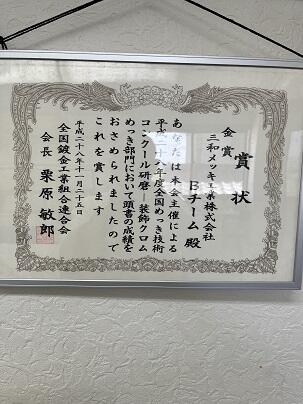 賞状
金賞
三和メッキ工業株式会社
Bチーム 殿
あなたは本会主催による
平成二十八年度全国めっき技術
コンクール研磨―装飾クロム
めっき部門において頭書の成績を
おさめられましたので
これを賞します
平成二十八年十一月二十五日
全国鍍金工業組合連合会
会長 栗原敏郎